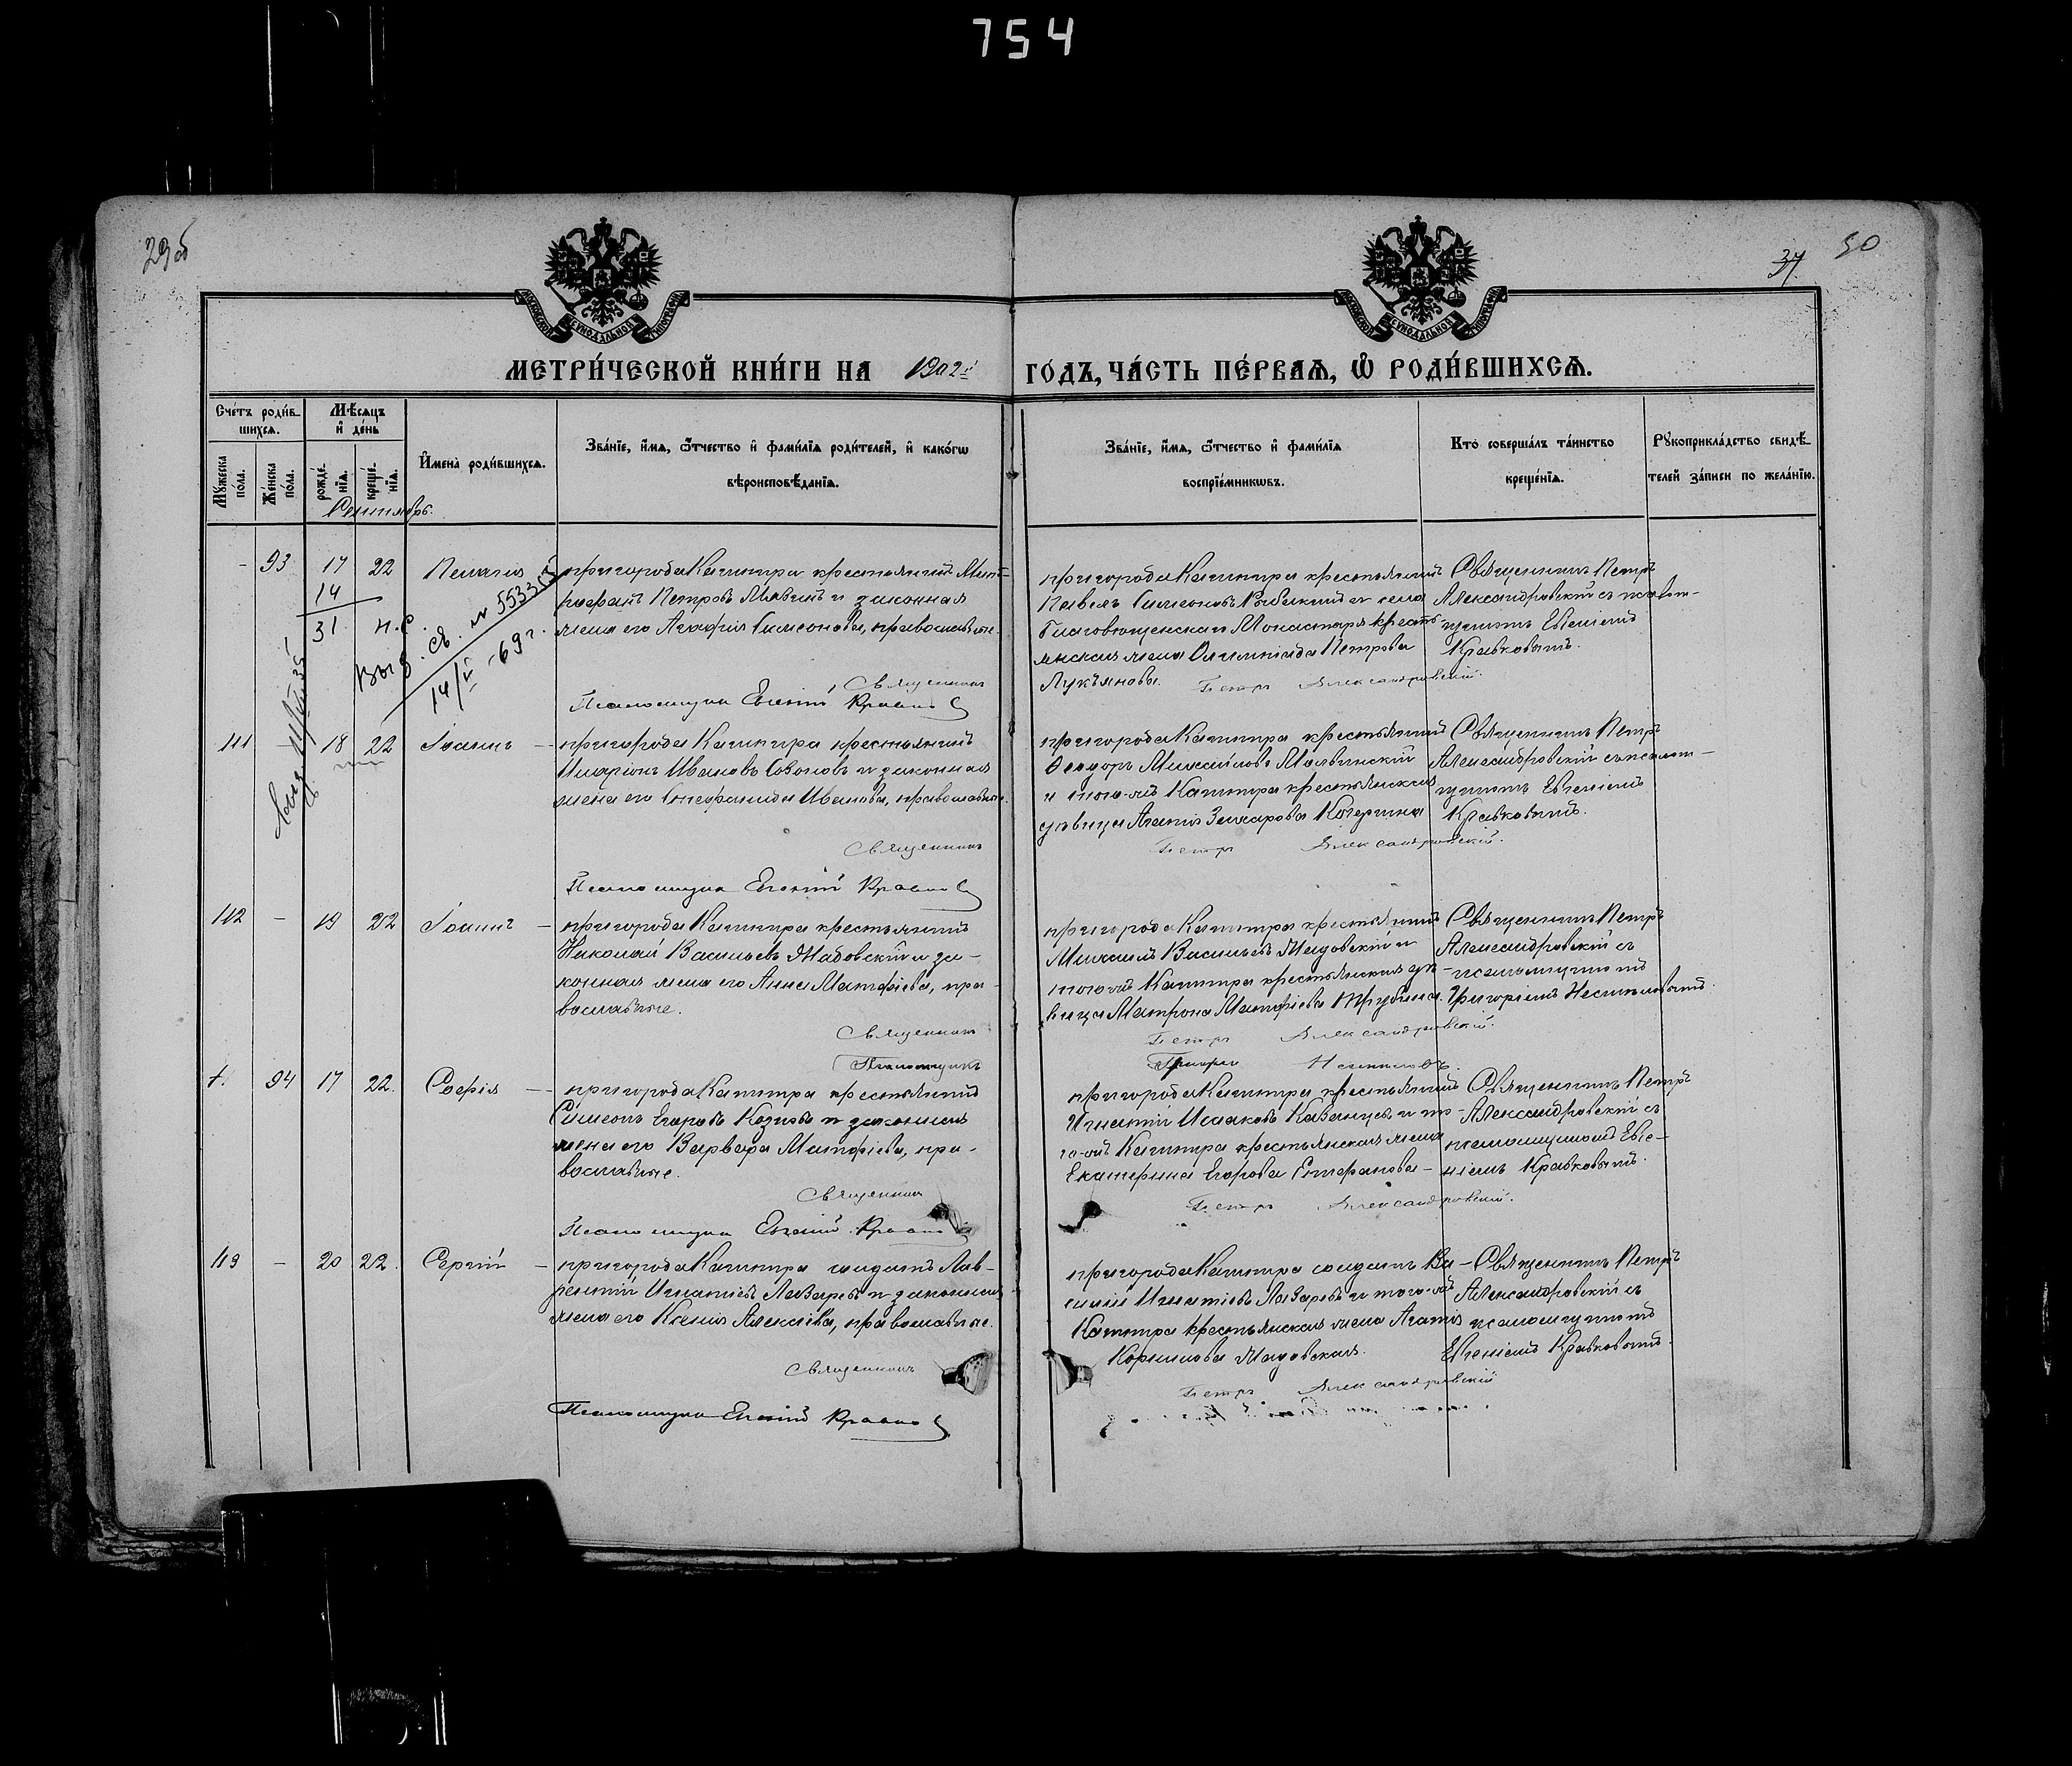 754
29об
37
50
МОСКОВСКОЙ СѴНОДАЛЬНОЙ ТИПОГРАФІИ
МОСКОВСКОЙ СѴНОДАЛЬНОЙ ТИПОГРАФІИ
МЕТРИ́ЧЕСКОЙ КНИ́ГИ НА 1902й ГОДЪ, ЧА́СТЬ ПЕ́РВАЯ, Ѡ РОДИ́ВШИХСЯ.
Сче́тъ роди́в-
шихся.
Мѣ́сяцъ
и де́нь
Му́жеска
по́ла.
Же́нска
по́ла.
рожде́-
нія.
креще́-
нія.
Имена̀ роди́вшихся.
Зва́ніе, и́мя, ѻ́тчество и фами́лія роди́телей, и како́гѡ
вѣроисповѣ́данія.
Зва́ніе, и́мя, ѻ́тчество и фами́лія
воспріе́мникѡвъ.
Кто̀ соверша́лъ та́инство
креще́нія.
Рꙋкоприкла́дство свидѣ́-
телей за́писи по жела́нію.
Сентябрь.
- 93 17 22 Пелагія
14
31 н.с.
Выд. св. № 5533
14/V - 69 г.
пригорода Калитра крестьянинъ
Петровъ и законная
жена его Агафія Симеонова, православные.
Священникъ
Псаломщикъ Евгеній Кравко
пригорода Калитра крестьянинъ
Павелъ Симеоновъ и села
Благовещенскаго Монастыря кресть-
янская жена Олимпіада Петрова
Лукьянова.
Петръ Александровскій.
Священникъ Петръ
Александровскій съ псалом-
щикомъ Евгеніемъ
Кравковымъ.
111 - 18 22 Іоаннъ
пригорода Калитра крестьянинъ
Иларіонъ Ивановъ и законная
жена его Ивановна, православные.
Священникъ
Псаломщикъ Евгеній Кравко
пригорода Калитра крестьянинъ
Ѳеодоръ Михайловъ и
и того-жъ Калитра крестьянская
дѣвица Агапія Захарова Кочергина
Петръ Александровскій.
Священникъ Петръ
Александровскій съ псалом-
щикомъ Евгеніемъ
Кравковымъ.
112 - 19 22 Іоаннъ
пригорода Калитра крестьянинъ
Николай Васильевъ и за-
конная жена его Анна Матфіева, пра-
вославные.
Священникъ
Псаломщикъ
пригорода Калитра крестьянинъ
Михаилъ Васильевъ и
того-жъ Калитра крестьянская дѣ-
вица Матрона Матфіева Трубина.
Петръ Александровскій.
Священникъ Петръ
Александровскій съ
псаломщикомъ
Григоріемъ
94 17 22. Софія
пригорода Калитра крестьянинъ
Симеонъ Егоровъ и законная
жена его Варвара Матфіева, пра-
вославные.
Священникъ
Псаломщикъ Евгеній Кравко
пригорода Калитра крестьянинъ
Игнатій Исааковъ Казанцевъ и то-
го-жъ Калитра крестьянская жена
Екатерина Егорова Стефанова
Петръ Александровскій.
Священникъ Петръ
Александровскій съ
псаломщикомъ Евге-
ніемъ Кравковымъ.
113 - 20 22. Сергій
пригорода Калитра солдатъ Лав-
рентій Игнатіевъ Лазаревъ и законная
жена его Ксенія Алексіева, православные.
Священникъ
Псаломщикъ Евгеній Кравко
пригорода Калитра солдатъ Ва-
силій Игнатіевъ Лазаревъ и того-жъ
Калитра крестьянская жена Агапія
Корнилова
Петръ Александровскій
Священникъ Петръ
Александровскій съ
псаломщикомъ
Евгеніемъ Кравковымъ.